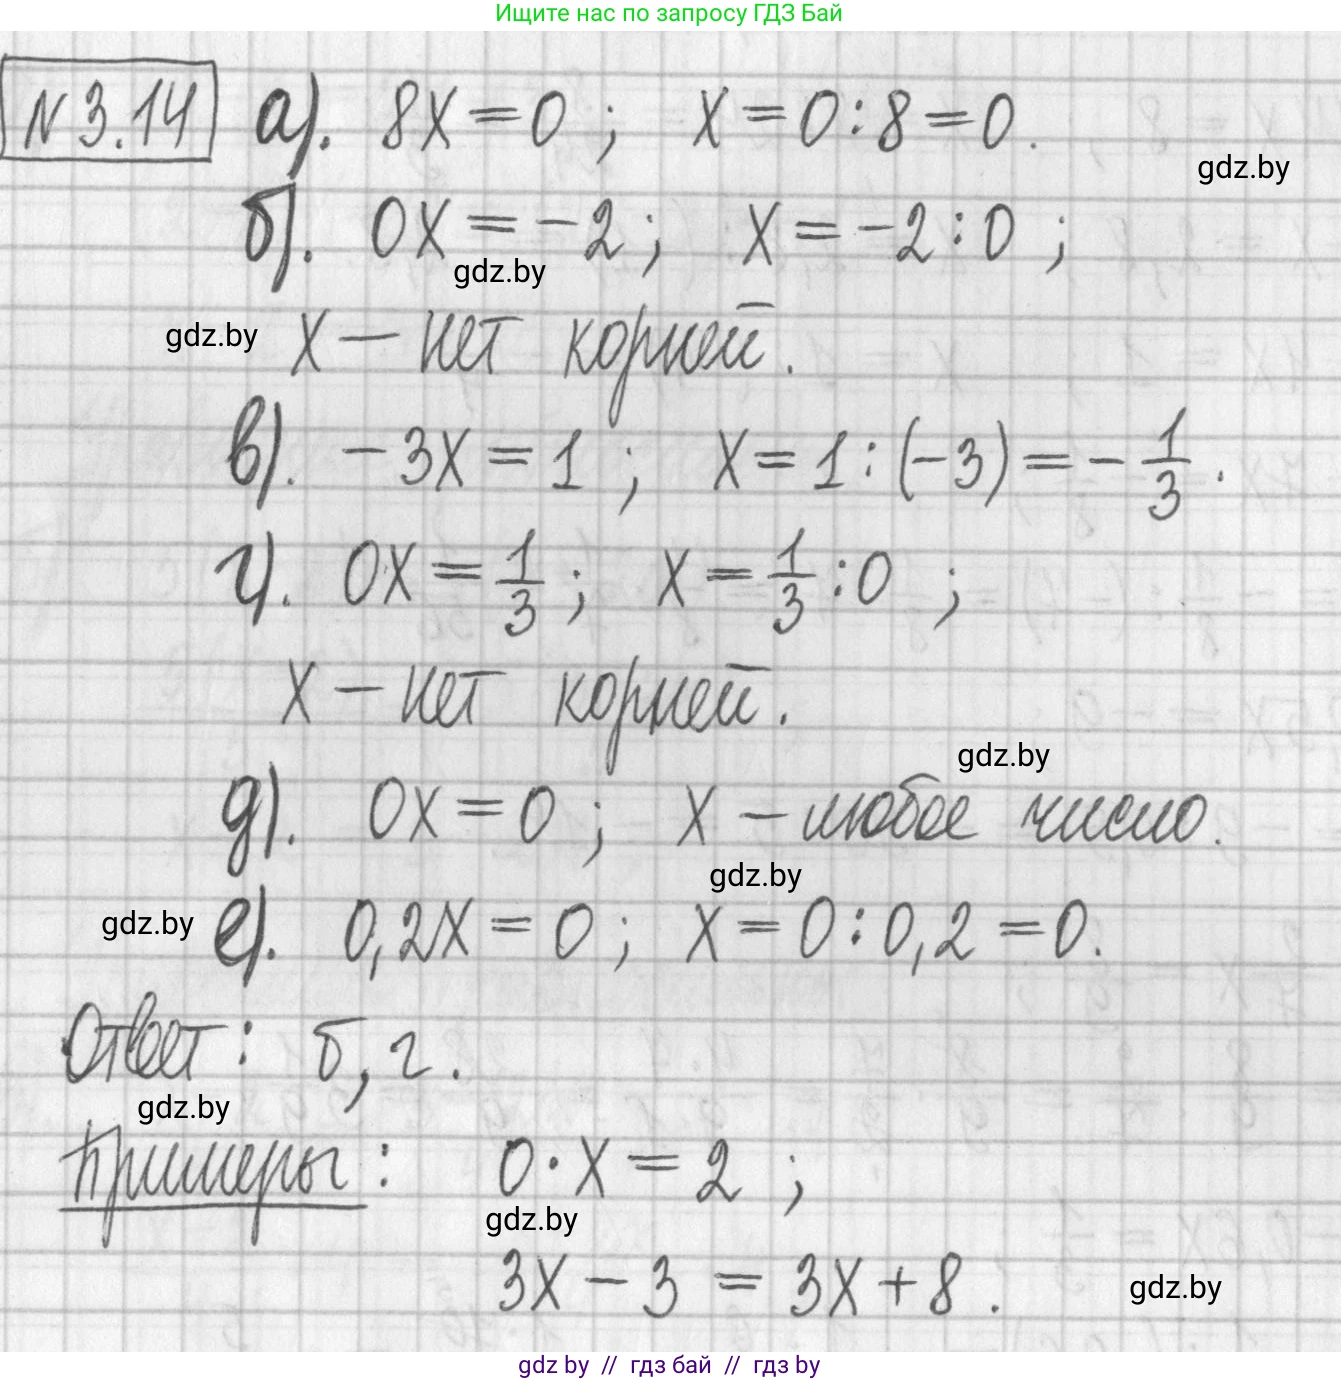 Ищите нас по запросу ГДЗ Бай
N 3.14 а). 8x = 0 ; x = 0 : 8 = 0 .
gdz.by
б). 0x = -2 ; x = -2 : 0 ;
gdz.by
gdz.by x – нет корней .
в). -3x = 1 ; x = 1 : (-3) = - 1/3 .
г). 0x = 1/3 ; x = 1/3 : 0 ;
x – нет корней .
gdz.by
д). 0x = 0 ; x – любое число .
gdz.by
gdz.by е). 0,2x = 0 ; x = 0 : 0,2 = 0 .
Ответ : б, г .
gdz.by
Примеры : 0 · x = 2 ;
gdz.by
3x - 3 = 3x + 8 .
gdz.by
gdz by // гдз бай // гдз by